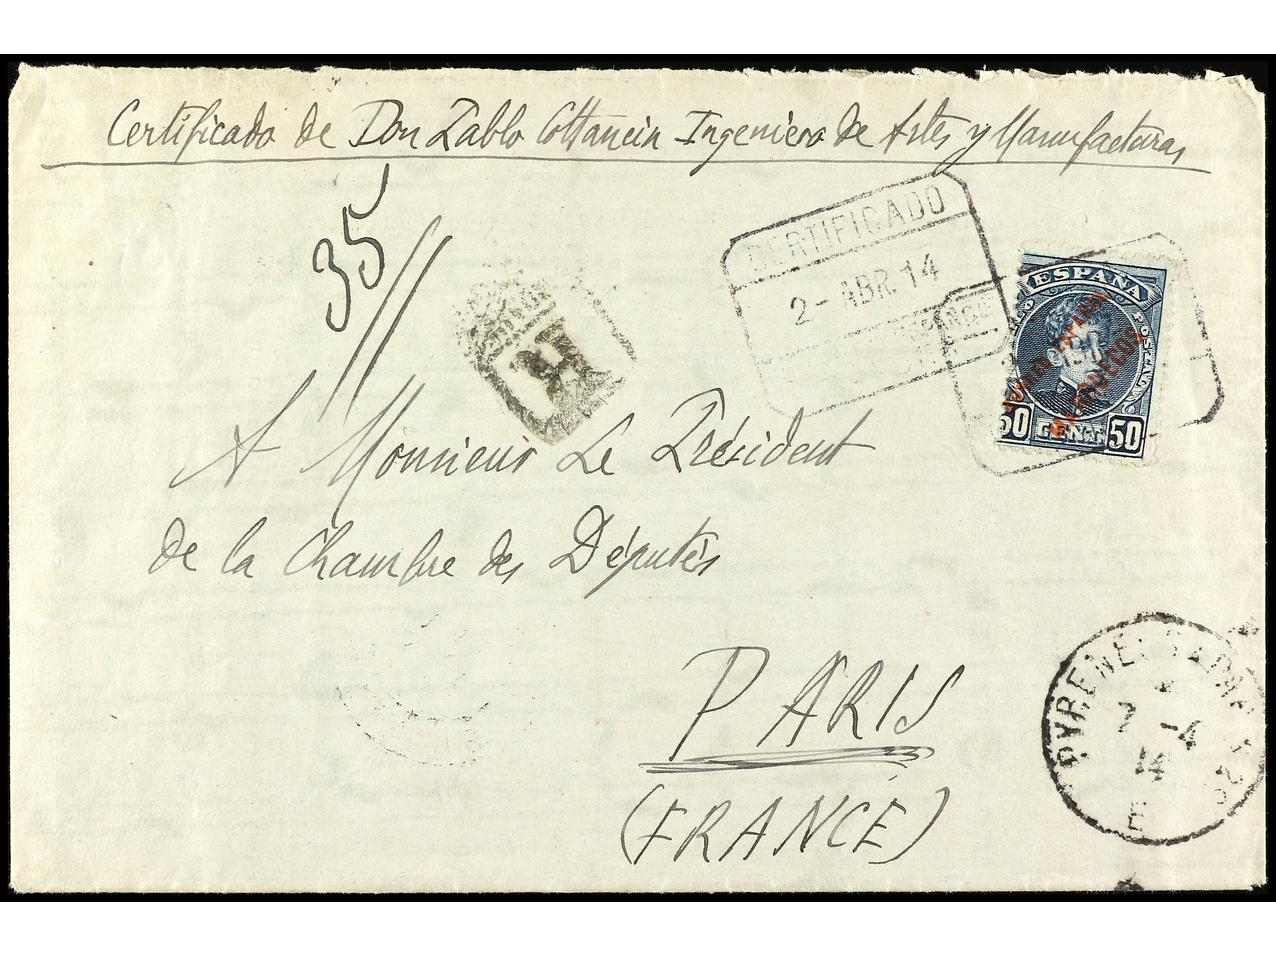 Certificado de Don Pablo Cottancin Ingeniero de Artes y Manufacturas
35
R
CERTIFICADO
2- ABR. 14
ESPAÑA
MARRUECOS
50 CENT. 50
A Monsieur Le Président
de la Chambre des Députés
PARIS
(FRANCE)
7 -4
14
E